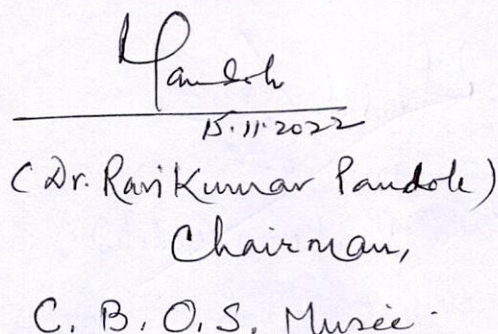 Pandole
15.11.2022
(Dr. Ravi Kumar Pandole)
Chairman,
C. B. O. S, Music.